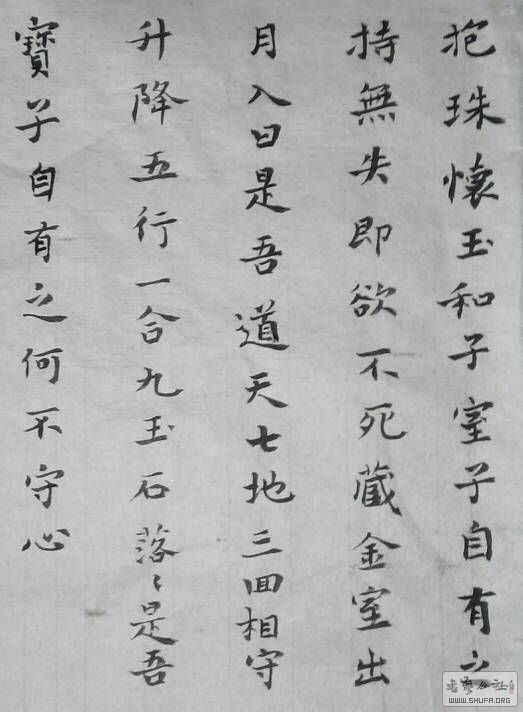 抱珠懷玉和子室子自有之
持無失即欲不死藏金室出
月入日是吾道天七地三回相守
升降五行一合九玉石落〻是吾
寶子自有之何不守心
WWW.SHUFA.ORG